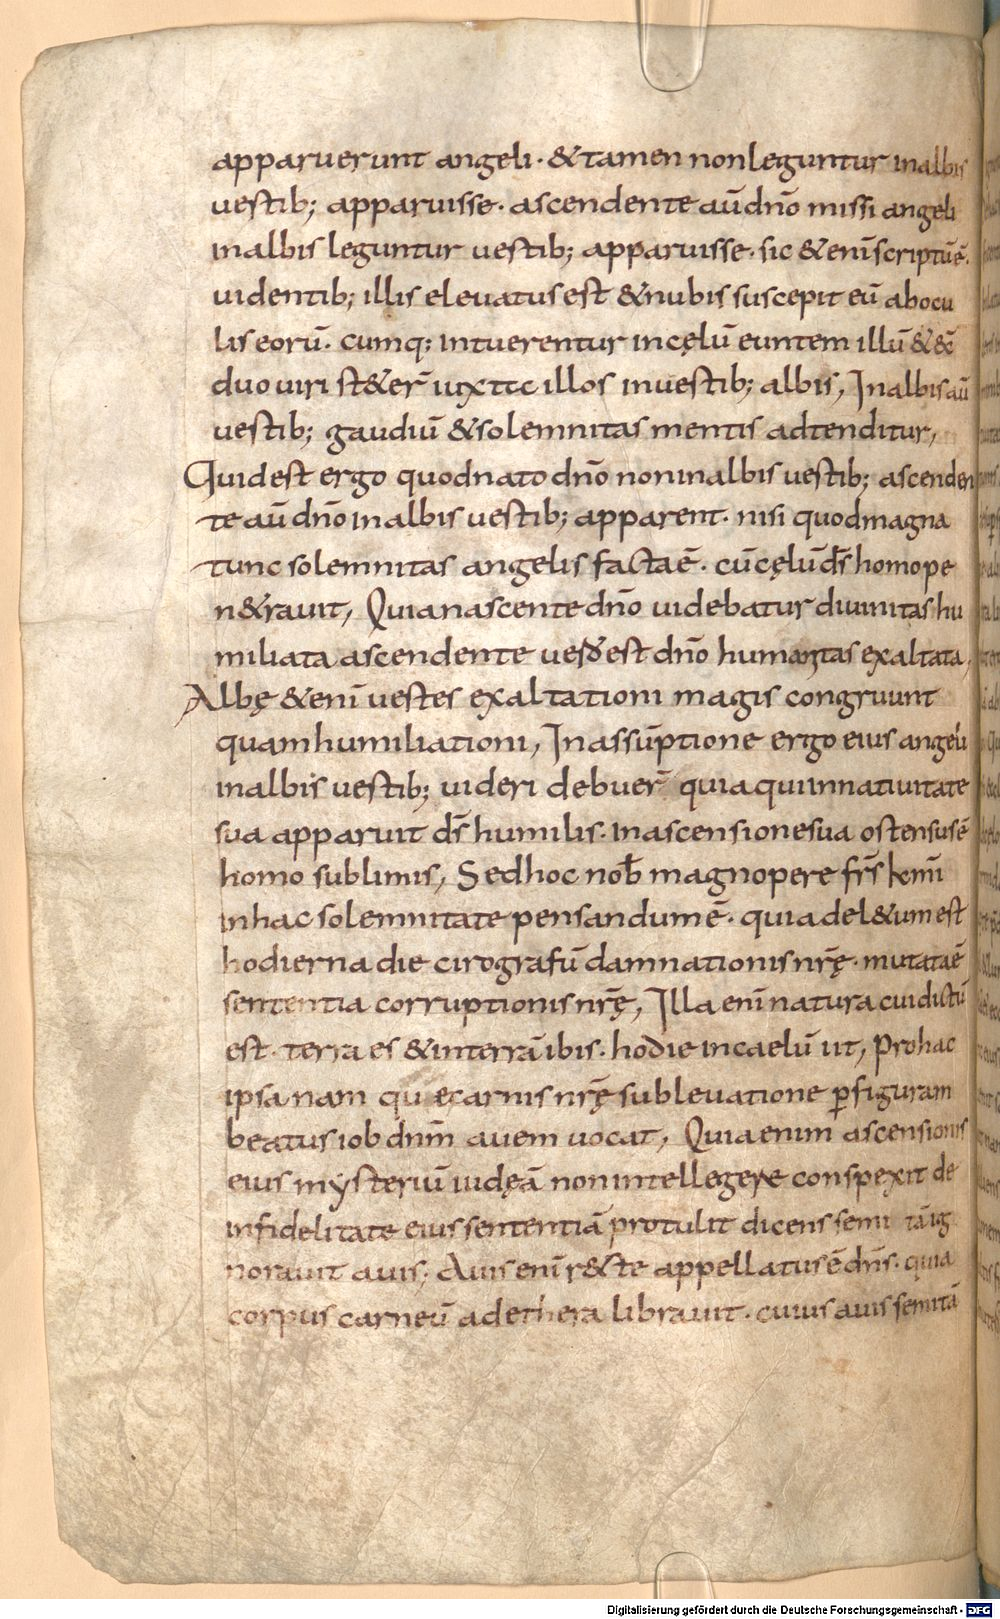 apparuerunt angeli · & tamen non leguntur inalbis
vestib; apparuisse · ascendente aū dño missi angeli
inalbis leguntur vestib; apparuisse · sic & enī scriptū ē ·
uidentib; illis elevatus est & nubis suscepit eū abocu
lis eorū · cumq; intuerentur incęlū euntem illū & ecc̄
duo uiri st&er̄ iuxta illos inuestib; albis, Inalbis aū
vestib; gaudiū & solemnitas mentis adtenditur,
Quid est ergo quod nato dño non inalbis vestib; ascenden
te aū dño inalbis vestib; apparent · nisi quod magna
tunc solemnitas angelis facta ē · cū cęlū d̄s homo pe
n&ravit, Quia nascente dño uidebatur diuinitas hu
miliata ascendente vero est dño humanitas exaltata,
Albę & enī vestes exaltationi magis congruunt
quam humiliationi, In assūptione ergo eius angeli
inalbis vestib; uideri debuer̄ quia qui innatiuitate
sua apparuit d̄s humilis · inascensione sua ostensus ē
homo sublimis, Sed hoc nob̄ magnopere fr̄s k̄mi
inhac solemnitate pensandum ē · quia del&um est
hodierna die cirografū damnationis nr̄ę · mutata ē
sententia corruptionis nr̄ę, Illa enī natura cui dictū
est · terra es & interrā ibis · hodie incaelū iit, Pro hac
ipsa nam qu e carnis nr̄ę sublevatione p̄ figuram
beatus iob dnm̄ auem uocat, Quia enim ascensionis
eius mysteriū iudęā non intellegere conspexit de
infidelitate eius sententiā protulit dicens semi tā ig
noravit avis; Auis enī r&te appellatus ē dn̄s · quia
corpus carneū ad ethera librauit · cuius auis semitā
Digitalisierung gefördert durch die Deutsche Forschungsgemeinschaft - DFG